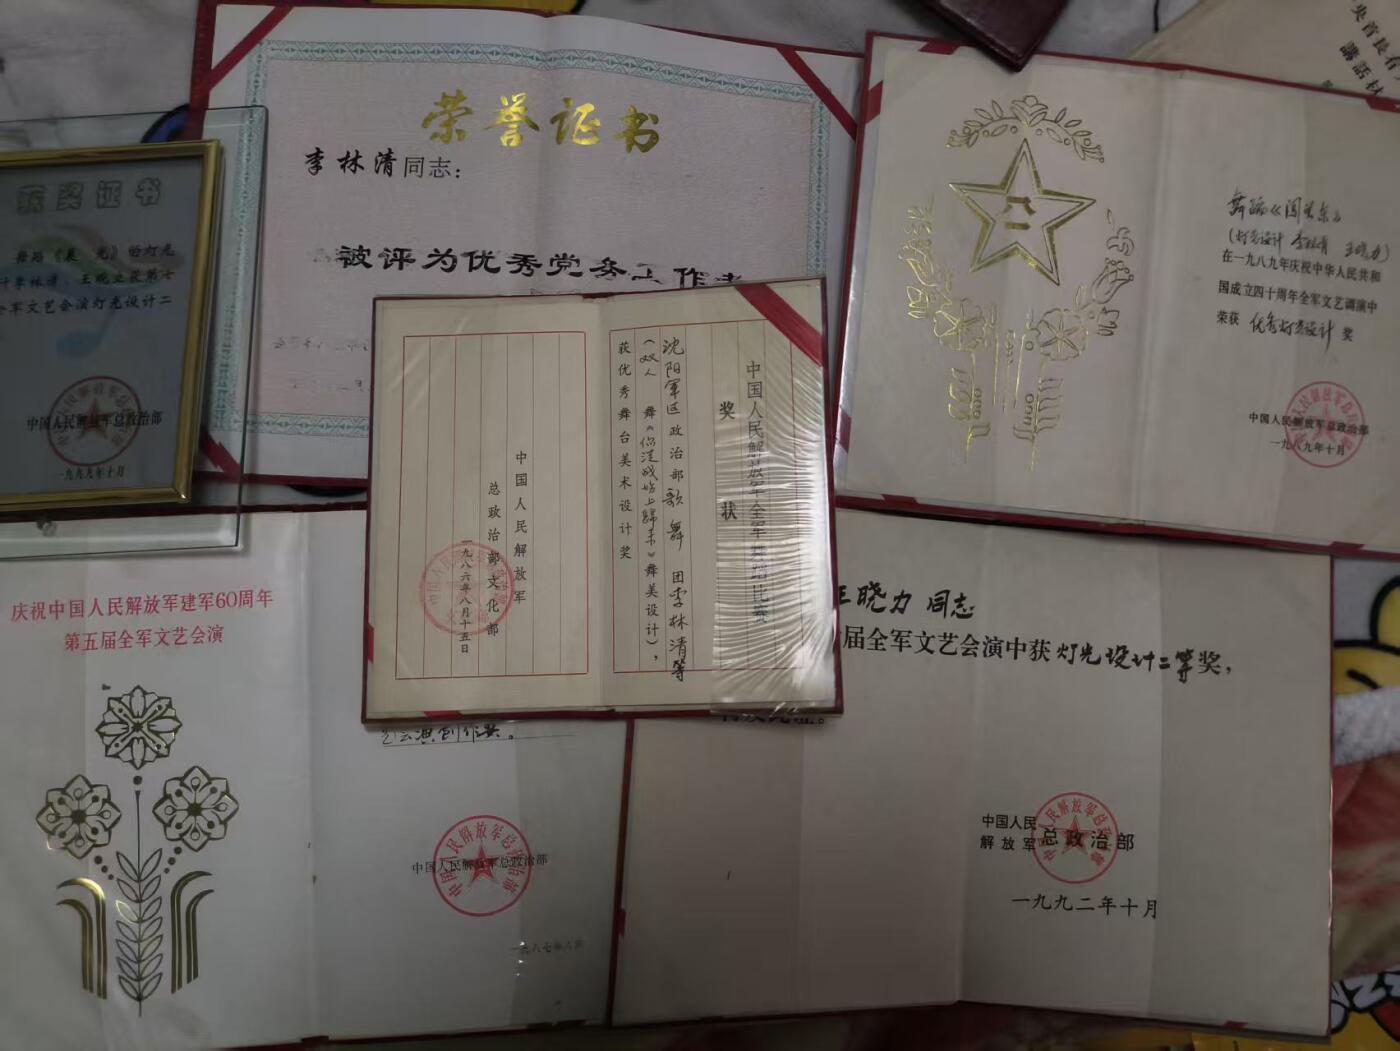 荣誉证书
李林清同志：
被评为优秀党务工作者
获奖证书
舞蹈《晨 光》的灯光
计李林清、王晓立获第七
全军文艺会演灯光设计二
中国人民解放军总政治部
一九九九年十月
舞蹈《闯关东》
(灯光设计 李林清 王晓力)
在一九八九年庆祝中华人民共和
国成立四十周年全军文艺调演中
荣获 优秀灯光设计 奖
中国人民解放军总政治部
一九八九年十月
中国人民解放军全军舞蹈比赛
奖状
沈阳军区政治部歌舞团李林清等
(双人舞《你从战场上归来》舞美设计)，
获优秀舞台美术设计奖
中国人民解放军
总政治部文化部
一九八六年八月十五日
庆祝中国人民解放军建军60周年
第五届全军文艺会演
艺会演创作奖。
中国人民解放军总政治部
一九八七年八月
王晓力 同志
届全军文艺会演中获灯光设计二等奖，
中国人民
解放军 总政治部
一九九二年十月
央首長
講話